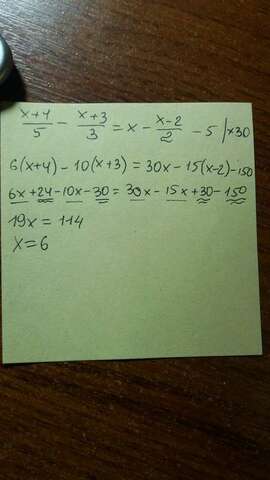 (x+4)/5 - (x+3)/3 = x - (x-2)/2 - 5 |x30
6(x+4) - 10(x+3) = 30x - 15(x-2) - 150
6x + 24 - 10x - 30 = 30x - 15x + 30 - 150
19x = 114
x = 6